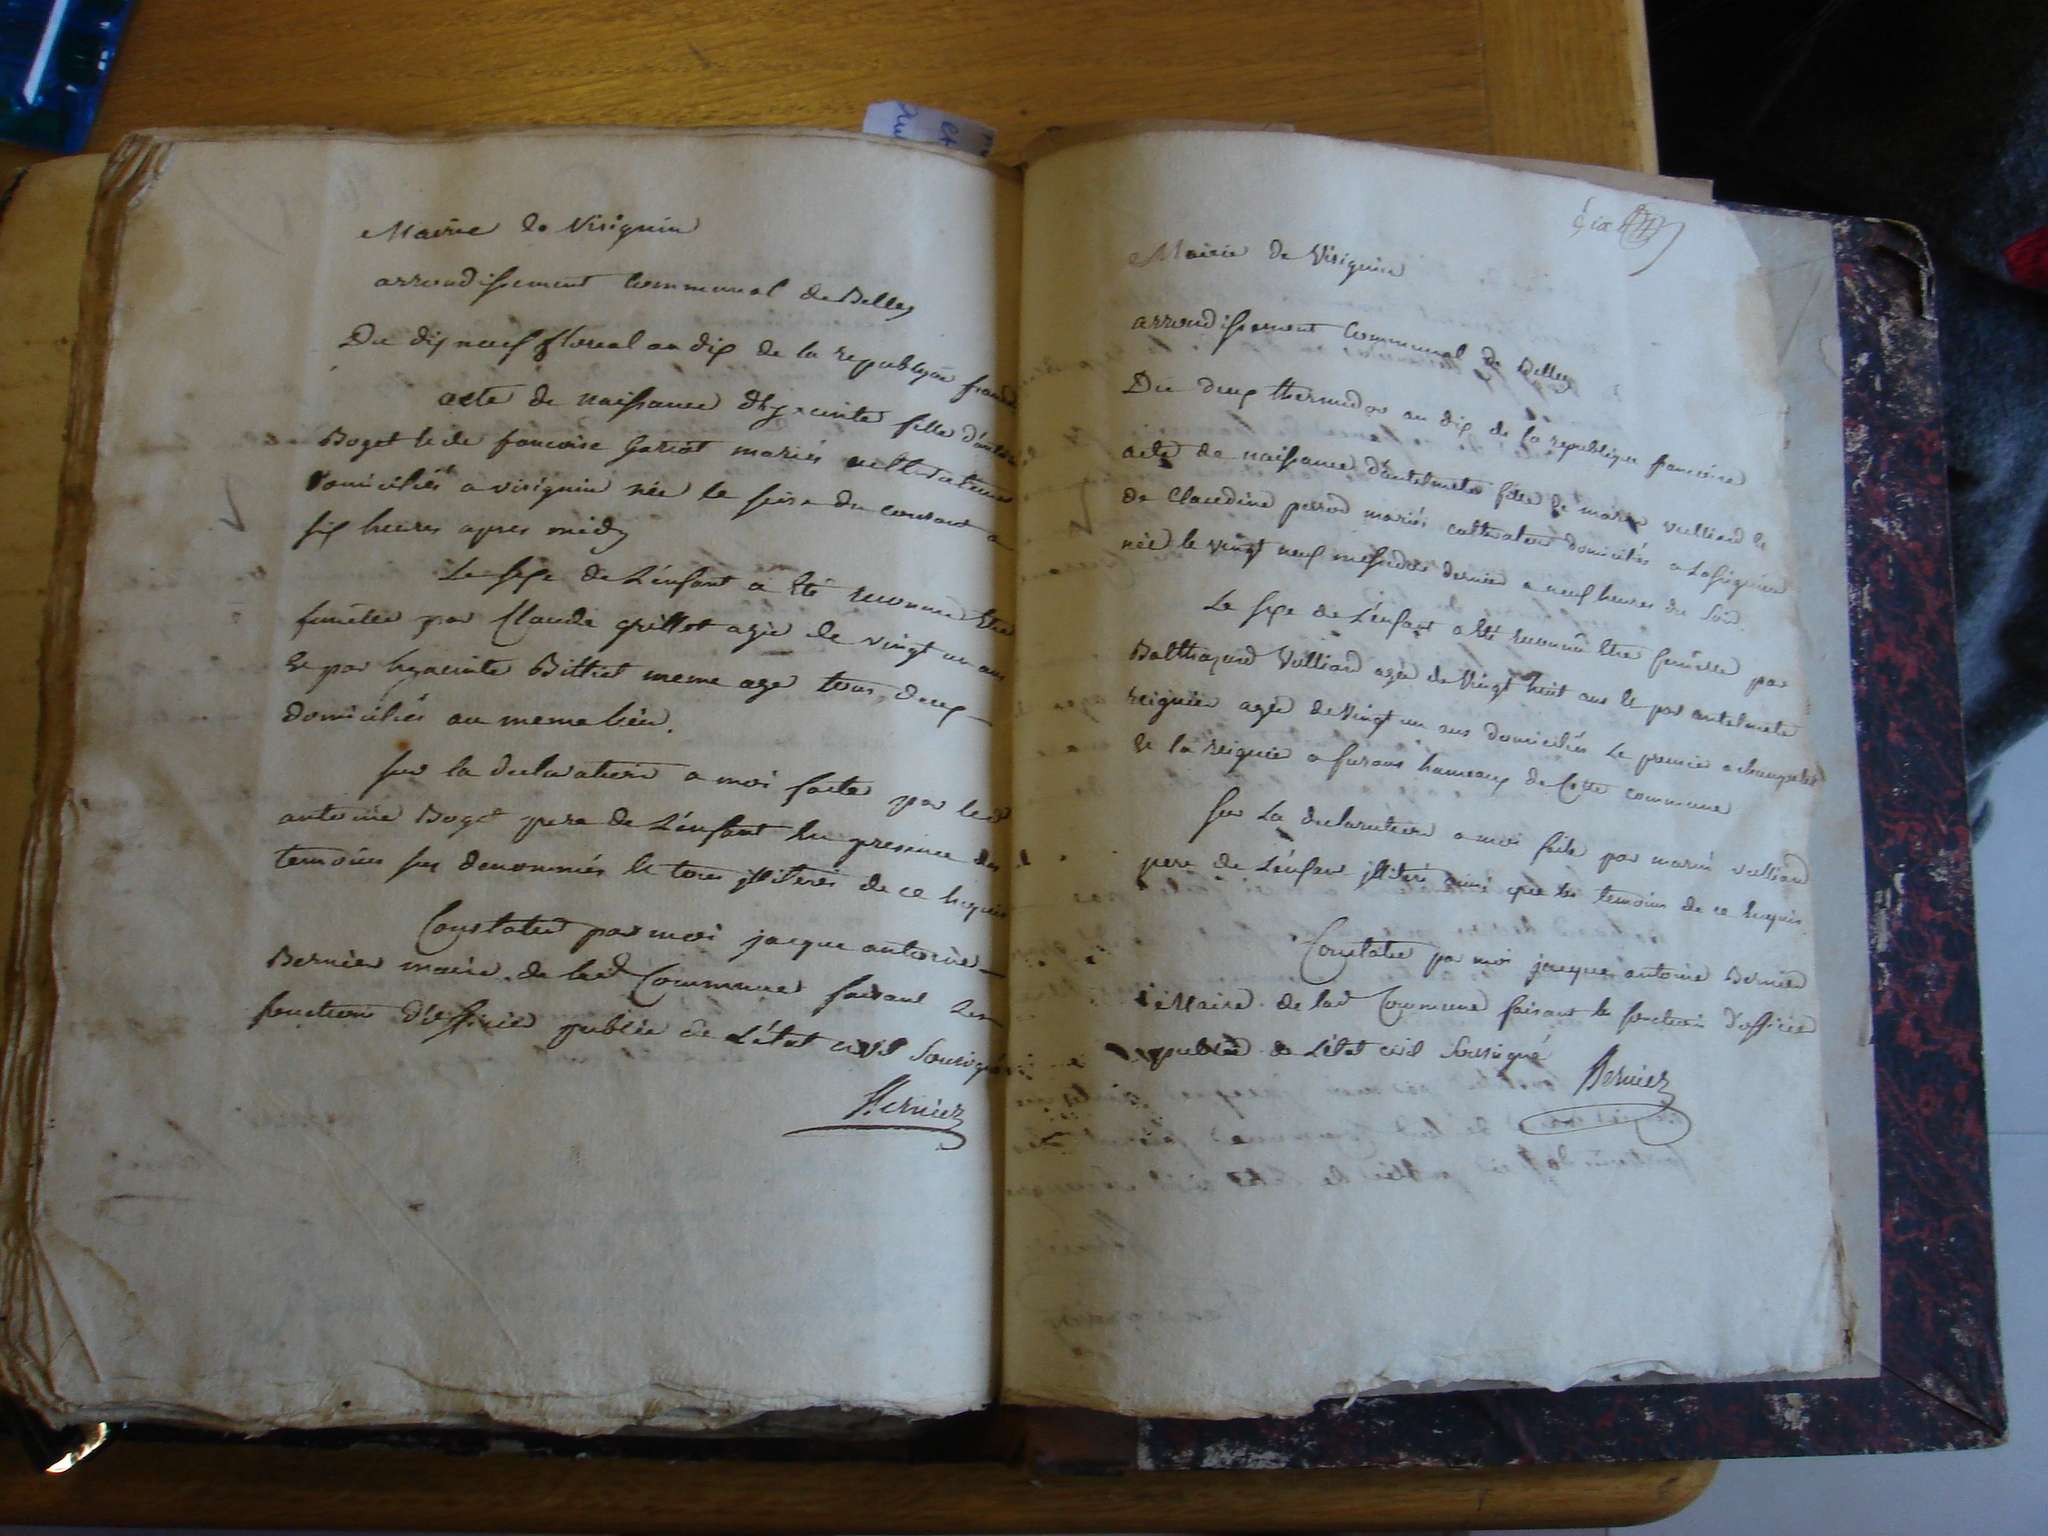 Mairie de Virignin
arrondissement communal de Belley
Du dix neuf floreal an dix de la republique
acte de naissance d'hyacinte fille d'antoine
Boget & de francoise Gariot mariés cultivateurs
domiciliés a virignin née le seise du courant a
six heures apres midy
Le sexe de L'enfant a été reconnu être
fumelle par Claude grillot agé de vingt un ans
& par hyacinte Billiet meme age tous deux
domiciliés au meme lieu.
sur la declaration a moi faite par led
antoine Boget pere de L'enfant en presence des
temoins sus denommés & tous illiterés de ce requis
Constaté par moi jacque antoine
Bernier maire de lad Commune faisant les
fonction d'officier public de L'état civil Sousigné
Bernier
Mairie de Virignin
arrondissement communal de Belley
Du deux thermidor an dix de la republique francoise
acte de naissance d'antelmete fille de marin vulliard &
de Claudine perrod mariés cultivateur domiciliés a
née le vingt neuf messidor dernier a neuf heures du soir
Le sexe de L'enfant a été reconnu être femelle par
Balthazard Vulliard agée de vingt huit ans & par antelmete
reignier agée de vingt un ans domiciliés Le premier a
& la reignier a furans hameaux de Cette commune
sur La declaration a moi faite par marin vulliard
pere de L'enfant illiteré ainsi que les temoins de ce requis
Constaté par moi jacque antoine Bernier
Maire de lad Commune faisant les fonction d'officier
public de L'état civil Sousigné
Bernier